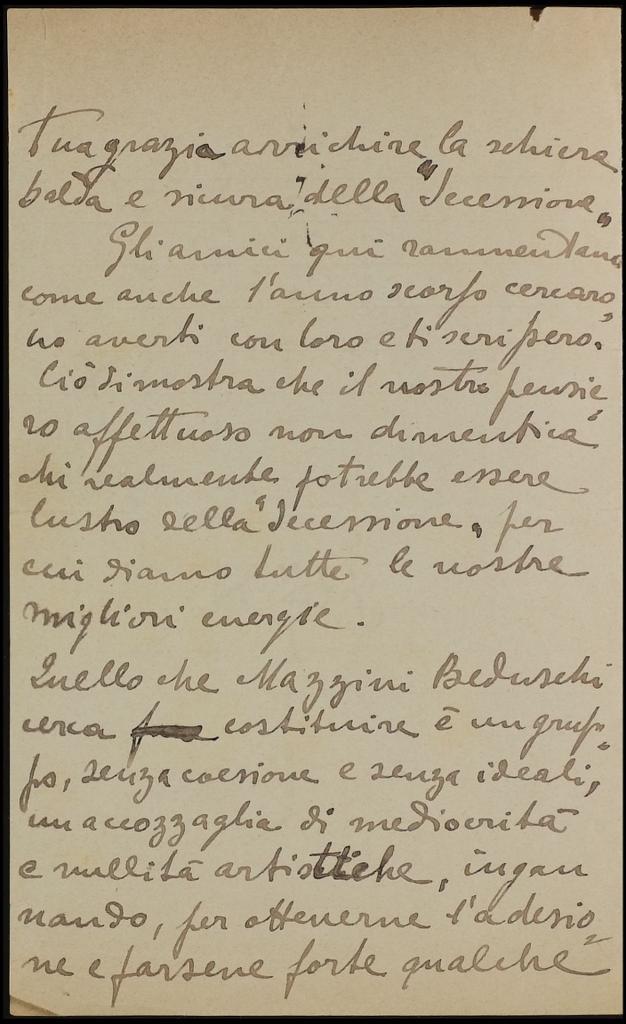 tua grazia arrichire la schiera
balda e sicura della "Secessione„
Gli amici qui rammentano
come anche l'anno scorso cercaro„
no averti con loro e ti scrissero.
Ciò dimostra che il nostro pensie„
ro affettuoso non dimentica
chi realmente potrebbe essere
lustro della "Secessione„ per
cui diamo tutte le nostre
migliori energie.
Quello che Mazzini Beduschi
cerca costituire è un grup„
po, senza coesione e senza ideali,
un accozzaglia di mediocrità
e nullità artistiche, ingan
nando, per ottenerne l'adesio„
ne e farsene forte qualche